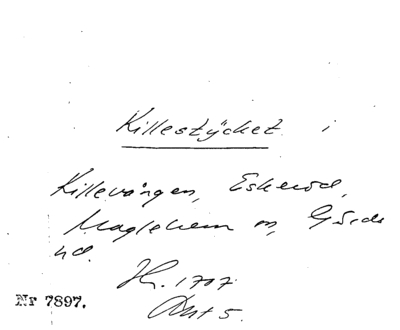 Killestycket i
Killevången, Eskeröd,
Maglehem sn, Gärds
hd.
Jb. 1707
Akt 5.
Nr 7897.